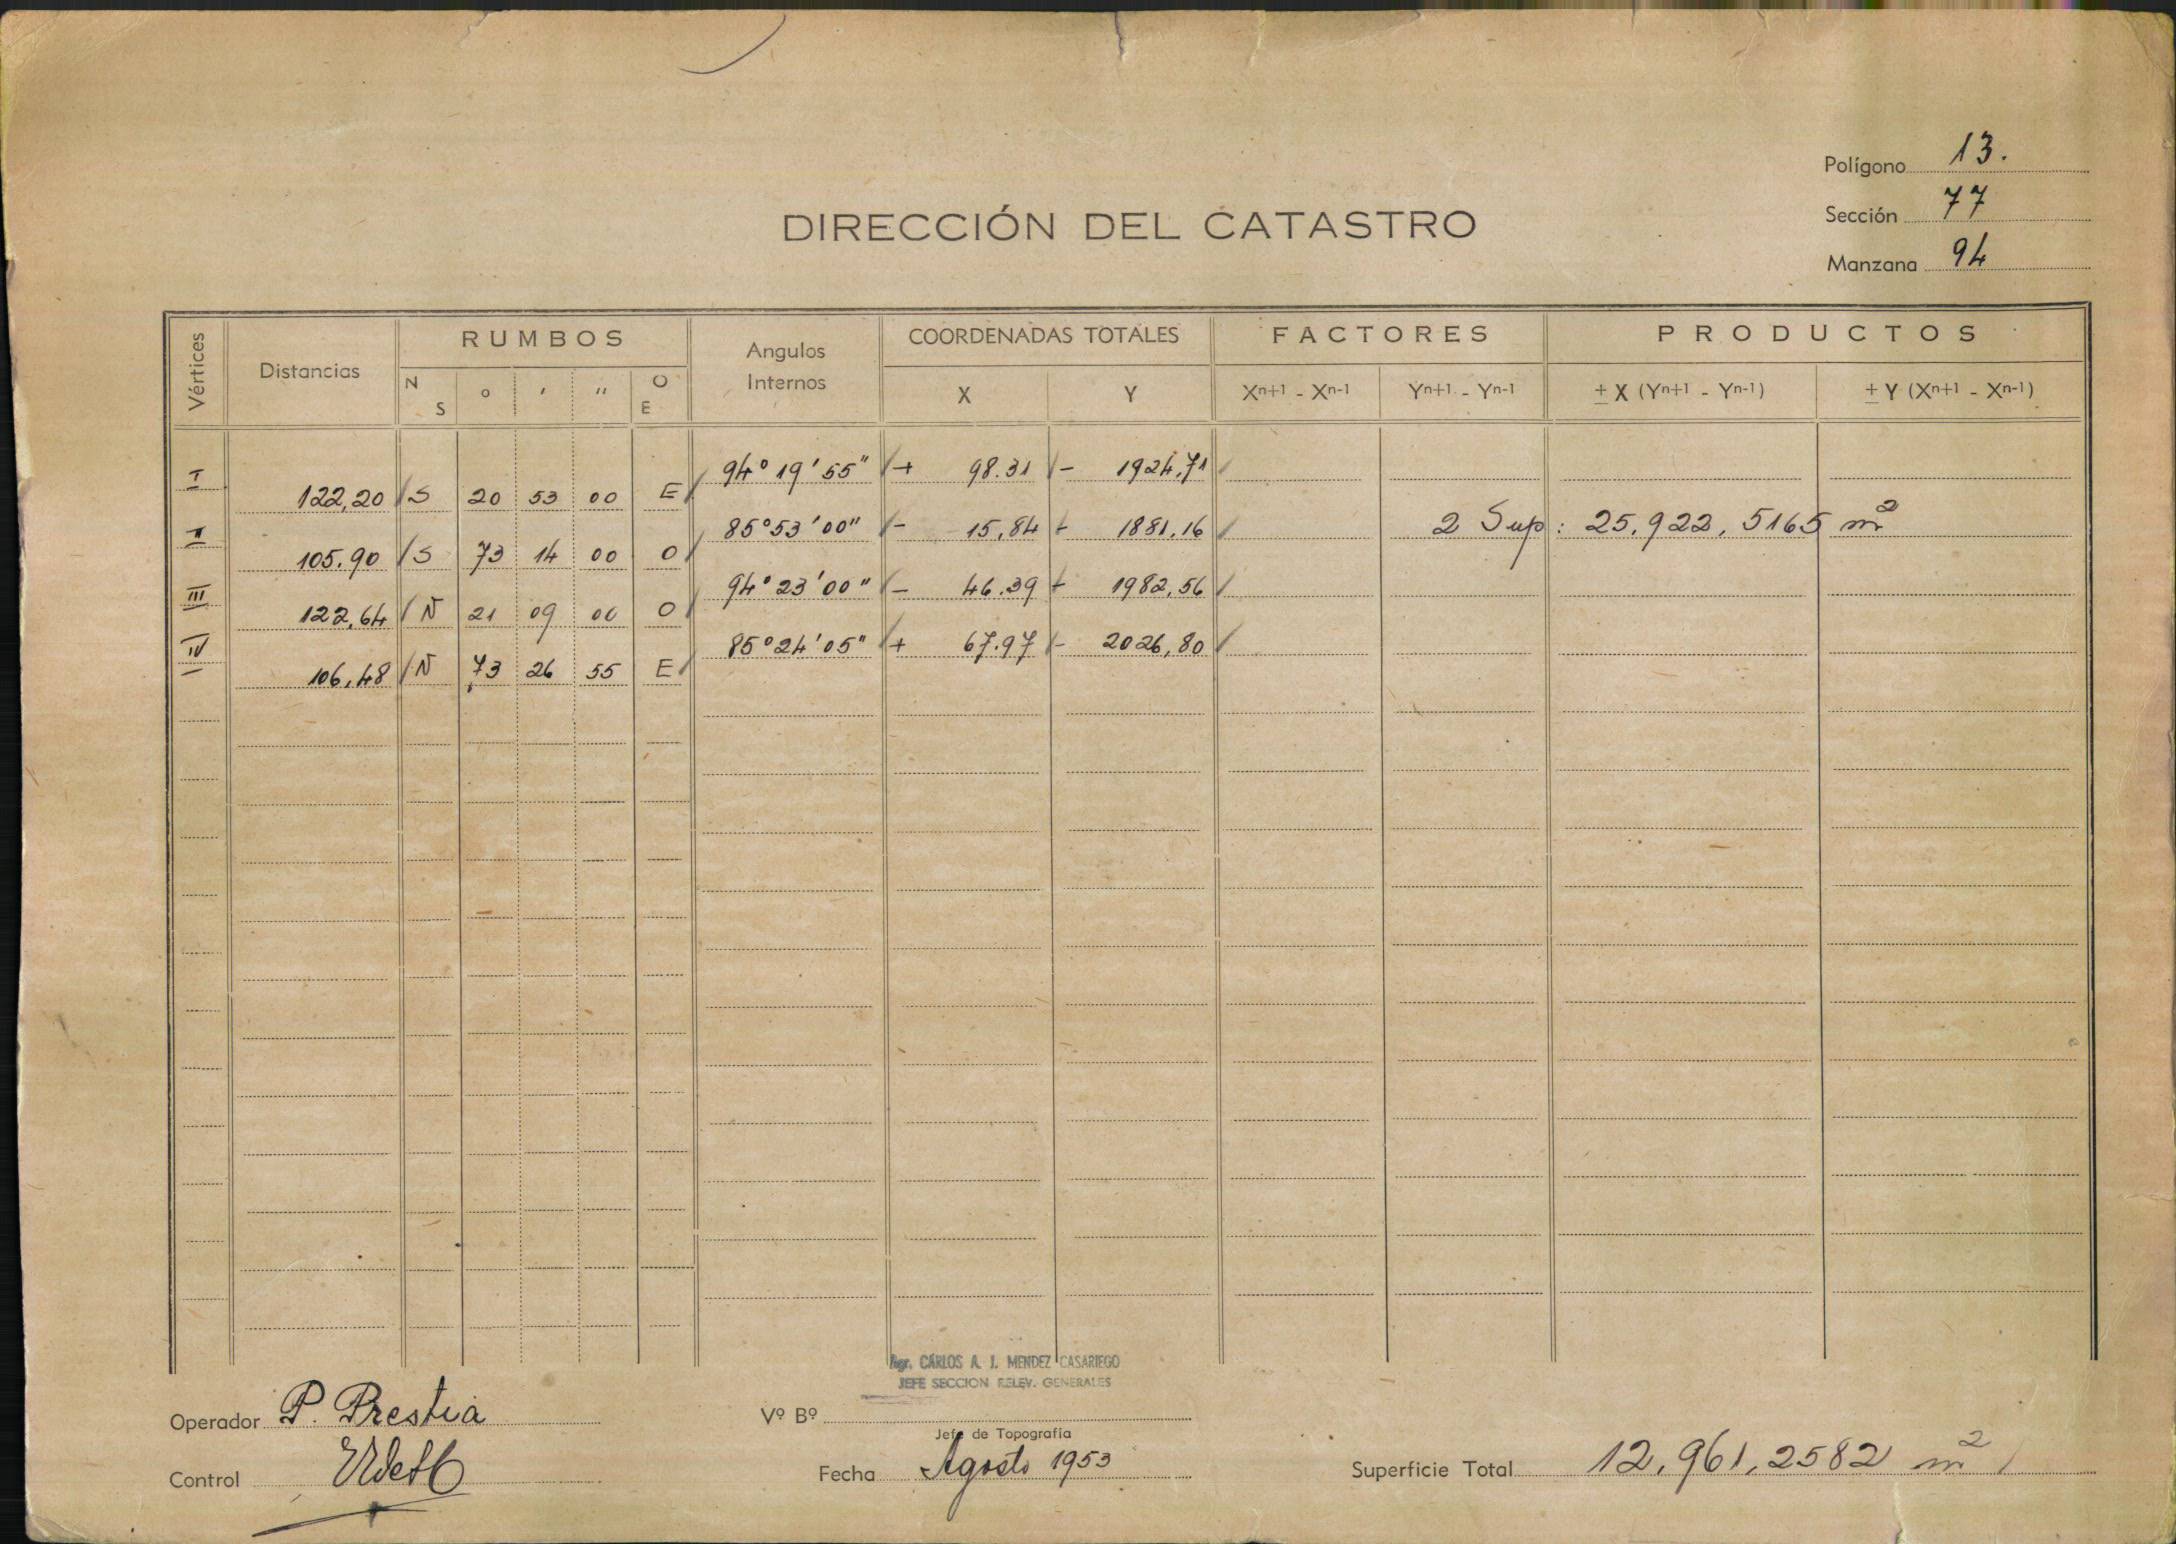 Polígono 13.
Sección 77
Manzana 94
DIRECCIÓN DEL CATASTRO
Vértices Distancias RUMBOS Angulos Internos COORDENADAS TOTALES FACTORES PRODUCTOS
N S ° ' " O E X Y Xn+1 - Xn-1 Yn+1 - Yn-1 ± X (Yn+1 - Yn-1) ± Y (Xn+1 - Xn-1)
I 94° 19' 55" + 98.31 - 1924,71
122,20 S 20 53 00 E
II 85° 53' 00" - 15,84 - 1881,16 2 Sup: 25.922,5165 m²
105.90 S 73 14 00 O
III 94° 23' 00" - 46.39 - 1982,56
122,64 N 21 09 00 O
IV 85° 24' 05" + 67.97 - 2026,80
106,48 N 73 26 55 E
CARLOS A. J. MENDEZ CASARIEGO
JEFE SECCION RELEV. GENERALES
Operador P. Prestia
Vº Bº
Jefe de Topografía
Control
Fecha Agosto 1953
Superficie Total 12.961,2582 m²